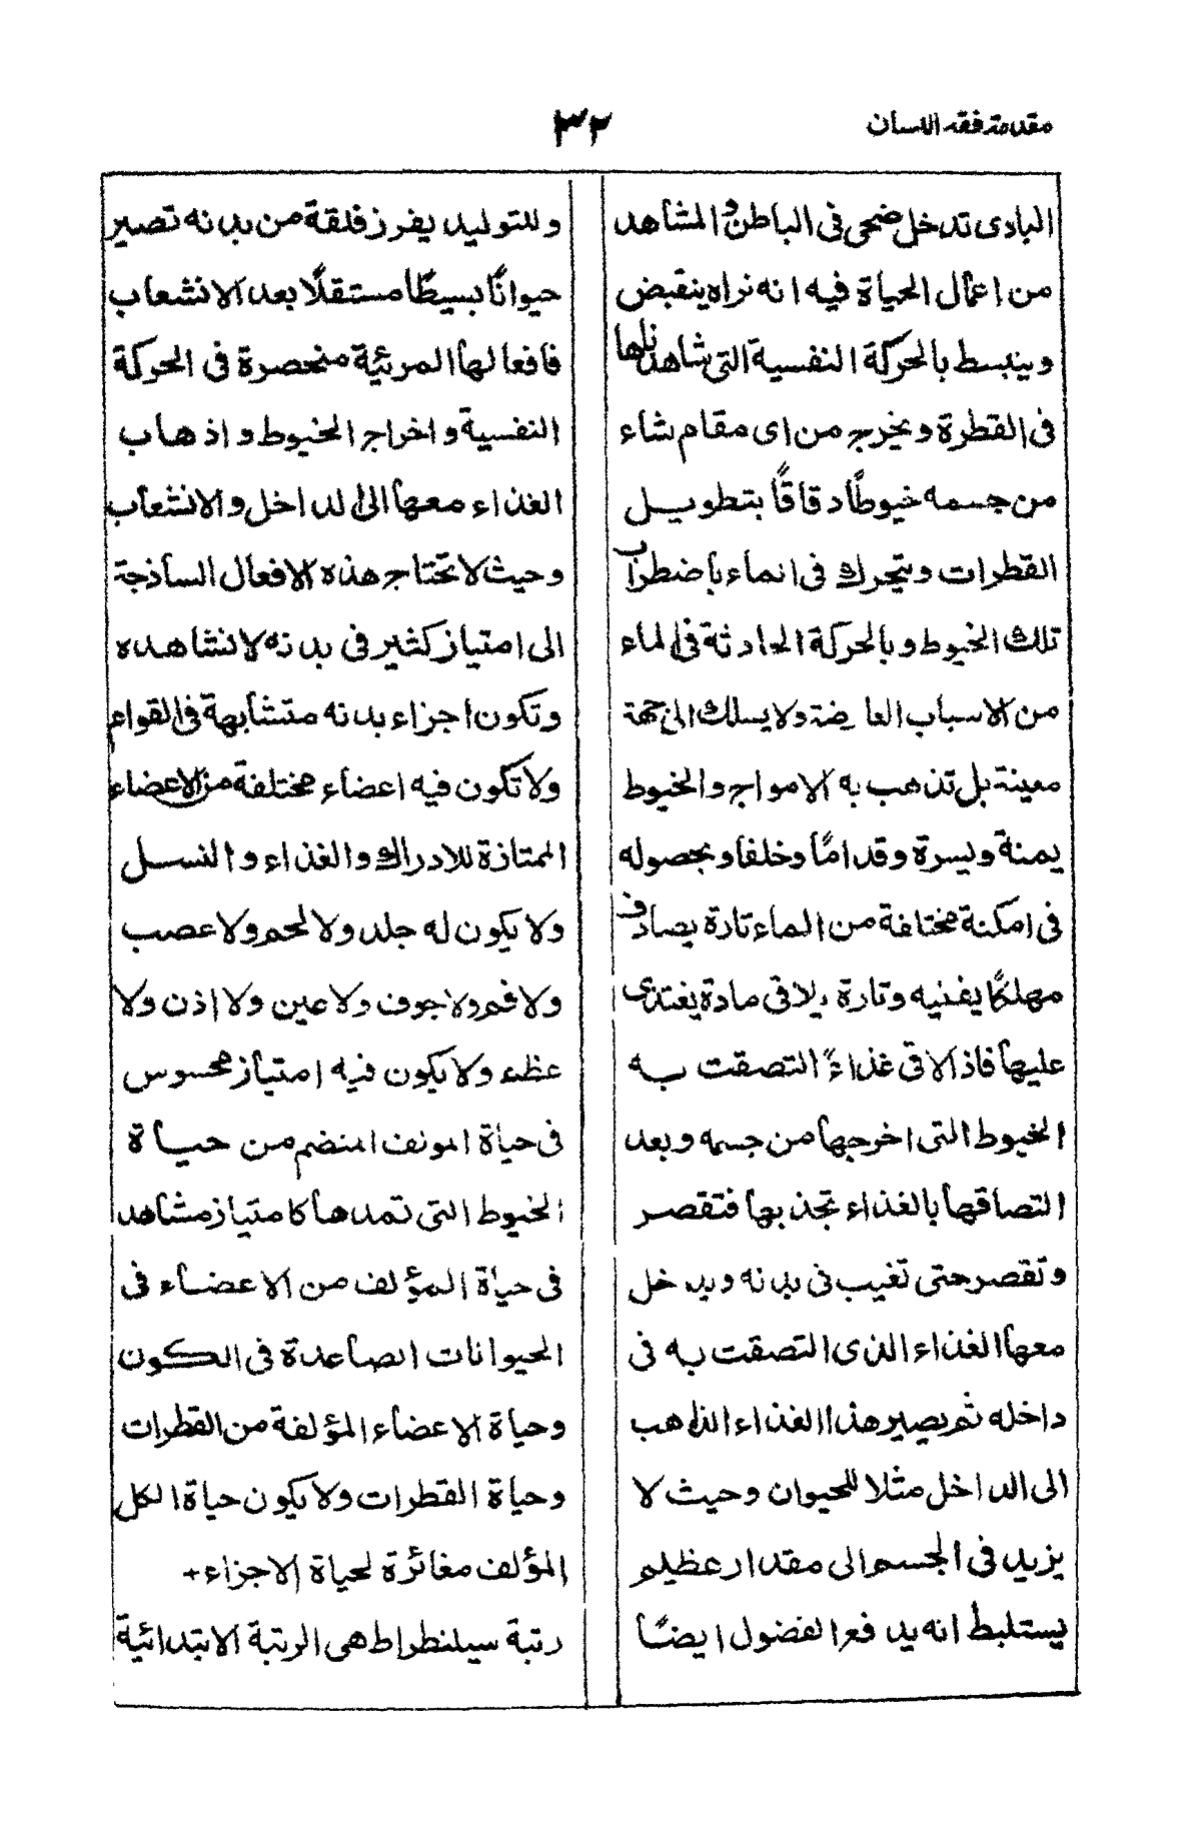 مقدمة فقه اللسان
٣٢
البادى تدخل ضحى فى الباطن و المشاهد
من اعمال الحياة فيه انه نراه ينقبض
وينبسط بالحركة النفسية التى شاهدناها
فى القطرة و يخرج من اى مقام شاء
من جسمه خيوطًا دقاقًا بتطويل
القطرات ويتحرك فى الماء باضطراب
تلك الخيوط و بالحركة الحادثة فى الماء
من الاسباب العارضة ولا يسلك الى جهة
معينة بل تذهب به الامواج والخيوط
يمنة و يسرة و قدامًا و خلفا و بحصوله
فى امكنة مختلفة من الماء تارة يصادف
مهلكًا يفنيه و تارة يلاقى مادة يغتذى
عليها فاذا لاقى غذاءً التصقت به
الخيوط التى اخرجها من جسمه و بعد
التصاقها بالغذاء تجذبها فتقصر
و تقصر حتى تغيب فى بدنه و يدخل
معها الغذاء الذى التصقت به فى
داخله ثم يصير هذا الغذاء الذاهب
الى الداخل مثلا للحيوان و حيث لا
يزيد فى الجسم الى مقدار عظيم
يستلبط انه يدفع الفضول ايضًا
و للتوليد يفرز فلقة من بدنه تصير
حيوانًا بسيطًا مستقلًا بعد الانشعاب
فافعالها المرئية منحصرة فى الحركة
النفسية و اخراج الخيوط و اذهاب
الغذاء معها الى الداخل و الانشعاب
و حيث لا تحتاج هذه الافعال الساذجة
الى امتياز كثير فى بدنه لا نشاهده
و تكون اجزاء بدنه متشابهة فى القوام
ولا تكون فيه اعضاء مختلفة من الاعضاء
الممتازة للادراك و الغذاء و النسل
ولا يكون له جلد ولا لحم ولا عصب
ولا فم ولا جوف ولا عين ولا اذن ولا
عظم ولا يكون فيه امتياز محسوس
فى حياة المونف المنضم من حياة
الخيوط التى تمدها كامتياز مشاهد
فى حياة المؤلف من الاعضاء فى
الحيوانات الصاعدة فى الكون
و حياة الاعضاء المؤلفة من القطرات
و حياة القطرات ولا يكون حياة الكل
المؤلف مغائرة لحياة الاجزاء +
رتبة سيلنطراط هى الرتبة الابتدائية